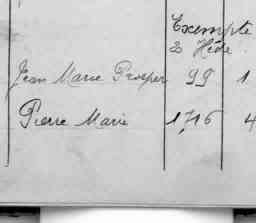 Exempte
& Hède
Jean Marie Prosper 99 1
Pierre Marie 1716 4